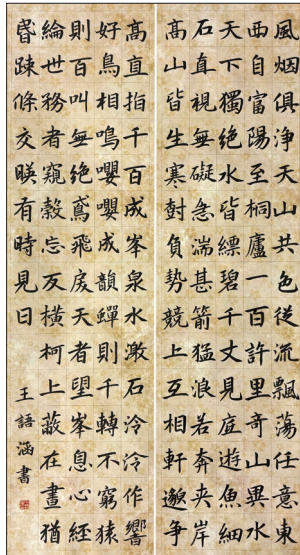 風烟俱淨天山共色從流飄蕩任意東
西自富陽至桐廬一百許里奇山異水
天下獨絕水皆縹碧千丈見底遊魚細
石直視無礙急湍甚箭猛浪若奔夾岸
高山皆生寒樹負勢競上互相軒邈爭
高直指千百成峯泉水激石泠泠作響
好鳥相鳴嚶嚶成韻蟬則千轉不窮猿
則百叫無絕鳶飛戾天者望峯息心經
綸世務者窺穀忘反橫柯上蔽在晝猶
昬踈條交暎有時見日
王語涵書